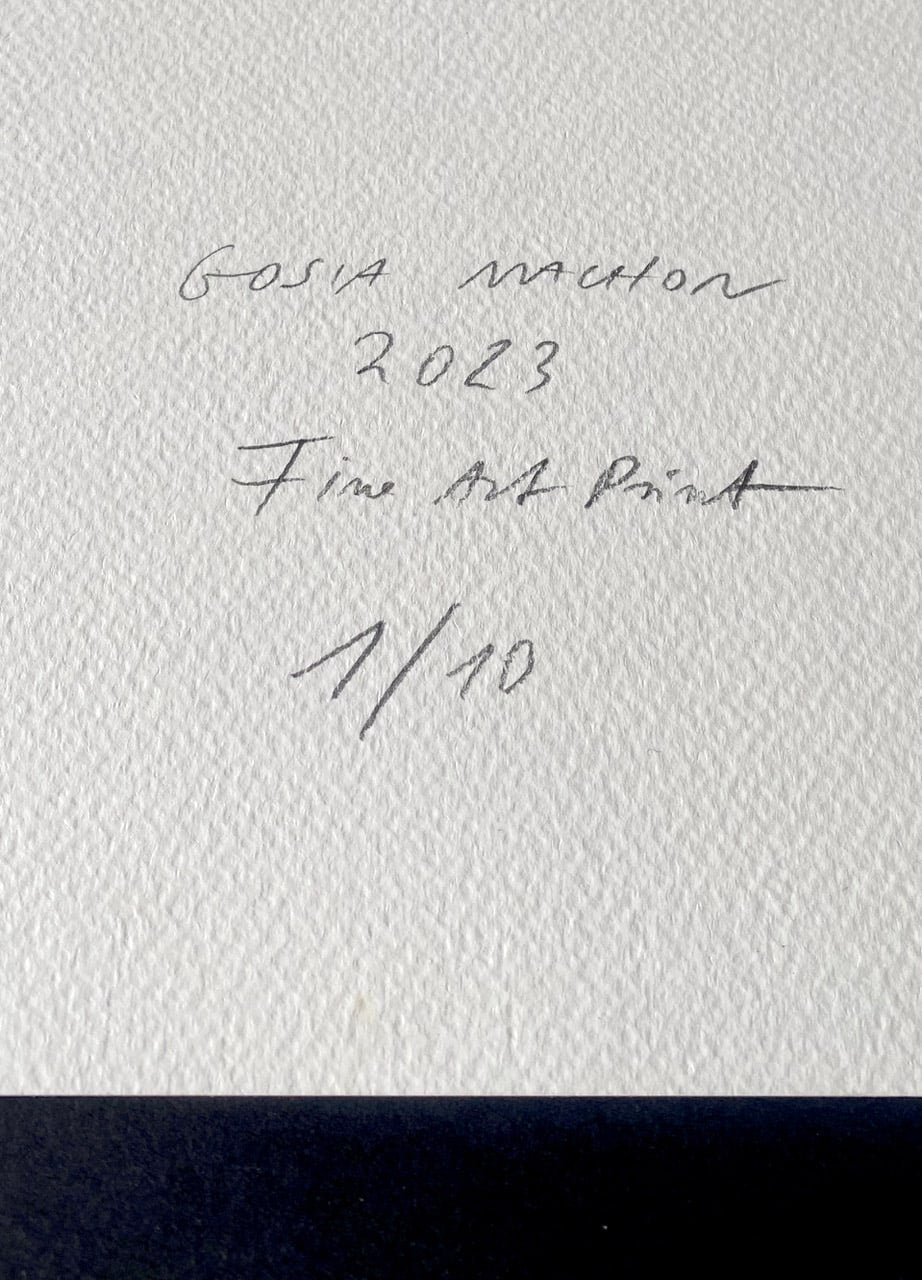 GOSIA MACHON
2023
Fine Art Print
1/10